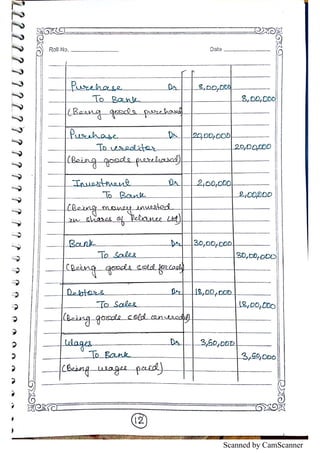 Roll No. Date
Purchase Dr 8,00,000
To Bank 8,00,000
(Being goods purchased)
Purchase Dr 20,00,000
To creditor 20,00,000
(Being goods purchased)
Investment Dr 2,00,000
To Bank 2,00,000
(Being money invested
in shares of Reliance
Bank Dr 30,00,000
To sales 30,00,000
(Being goods sold for cash)
Debtors Dr 18,00,000
To Sales 18,00,000
(Being goods sold on credit)
Wages Dr 3,60,000
To Bank 3,60,000
(Being wages paid)
12
Scanned by CamScanner